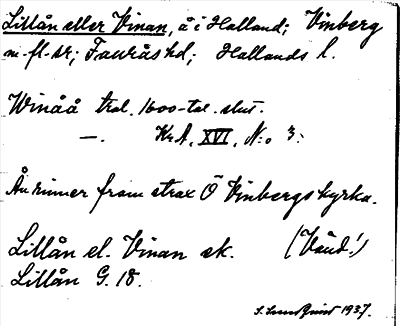 Lillån eller Vinan, å i Halland; Vinberg
m. fl. sr; Faurås hd; Hallands l.
Winåå trol. 1600-tal. slut.
—. KrA, XVI, N:o 3:
Ån rinner fram strax Ö Vinbergs kyrka.
Lillån el. Vinan ek. (Vänd!)
Lillån G. 18.
S. Lundquist 1937.